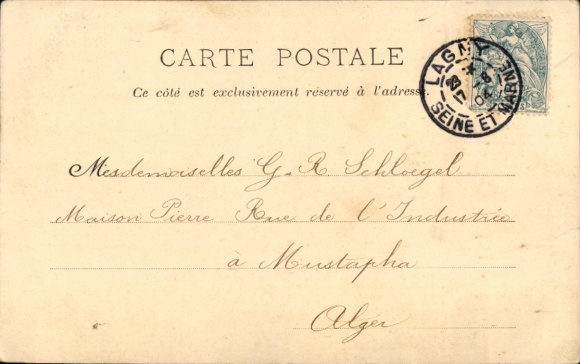 CARTE POSTALE
Ce côté est exclusivement réservé à l'adresse
LAGNY
SEINE ET MARNE
Mesdemoiselles G. R. Schloegel
Maison Pierre Rue de l'Industrie
à Mustapha
Alger